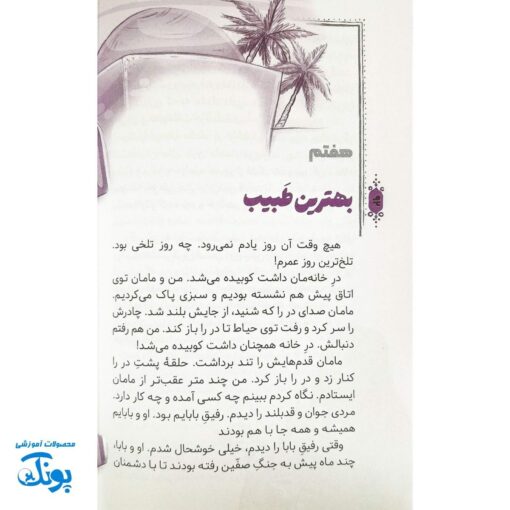 هفتم
بهترین طَبیب
هیچ وقت آن روز یادم نمی‌رود. چه روز تلخی بود.
تلخ‌ترین روز عمرم!
درِ خانه‌مان داشت کوبیده می‌شد. من و مامان توی
اتاق پیش هم نشسته بودیم و سبزی پاک می‌کردیم.
مامان صدای در را که شنید، از جایش بلند شد. چادرش
را سر کرد و رفت توی حیاط تا در را باز کند. من هم رفتم
دنبالش. در خانه همچنان داشت کوبیده می‌شد!
مامان قدم‌هایش را تند برداشت. حلقهٔ پشتِ در را
کنار زد و در را باز کرد. من چند متر عقب‌تر از مامان
ایستادم. نگاه کردم ببینم چه کسی آمده و چه کار دارد.
مردی جوان و قدبلند را دیدم. رفیقِ بابایم بود. او و بابایم
همیشه و همه جا با هم بودند
وقتی رفیقِ بابا را دیدم، خیلی خوشحال شدم. او و بابا،
چند ماه پیش به جنگِ صفّین رفته بودند تا با دشمنان
محصولات آموزشی
پونک